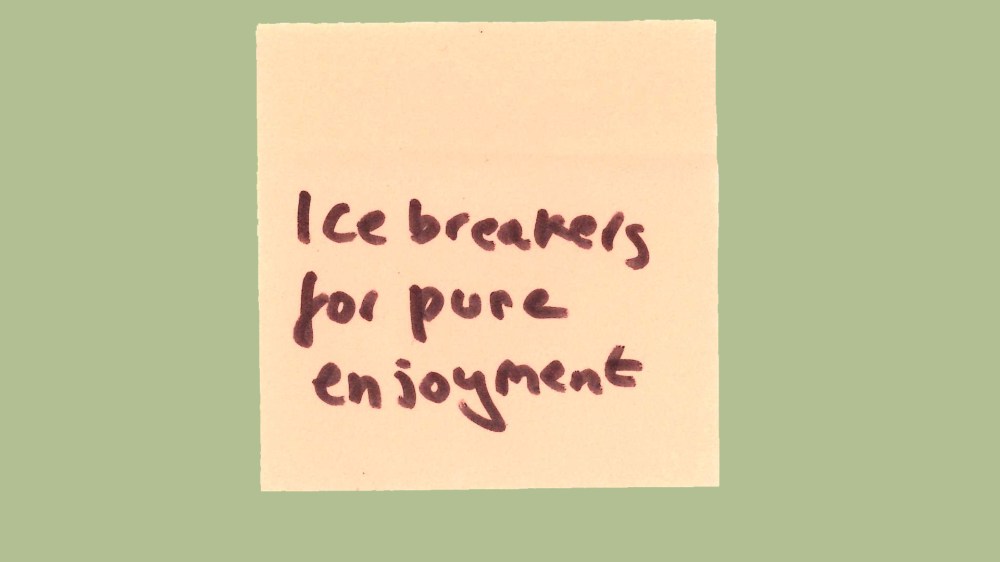 Ice breakers
for pure
enjoyment